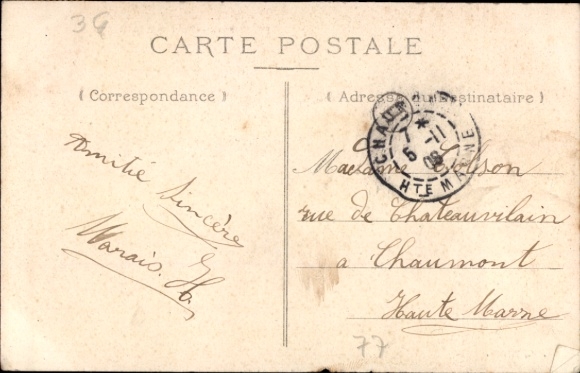 36
CARTE POSTALE
( Correspondance )
( Adresse du Destinataire )
Amitié
Sincère
Marais. H.
CHAU
5 -11
09
HTE MARNE
Madame
rue de Chateauvilain
a Chaumont
Haute Marne
77